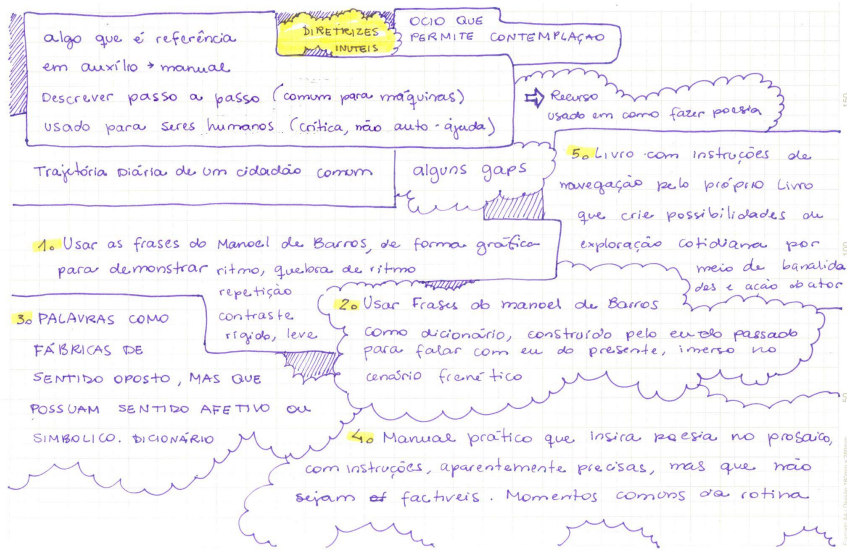 algo que é referência
em auxílio → manual
Descrever passo a passo (comum para máquinas)
usado para seres humanos (crítica, não auto-ajuda)
DIRETRIZES
INUTEIS
OCIO QUE
PERMITE CONTEMPLAÇÃO
⇨ Recurso
usado em como fazer poesia
Trajetória Diária de um cidadão comum
alguns gaps
5. Livro com instruções de
navegação pelo próprio Livro
que crie possibilidades de
exploração cotidiana por
meio de banalida
des e ação do ator
1. Usar as frases do Manoel de Barros, de forma gráfica
para demonstrar ritmo, quebra de ritmo
repetição
contraste
rígido, leve
2. Usar Frases do manoel de Barros
como dicionário, construído pelo eu do passado
para falar com eu do presente, imerso no
cenário frenético
3. PALAVRAS COMO
FÁBRICAS DE
SENTIDO OPOSTO, MAS QUE
POSSUAM SENTIDO AFETIVO OU
SIMBOLICO. DICIONÁRIO
4. Manual prático que insira poesia no prosaico,
com instruções, aparentemente precisas, mas que não
sejam factiveis. Momentos comuns da rotina